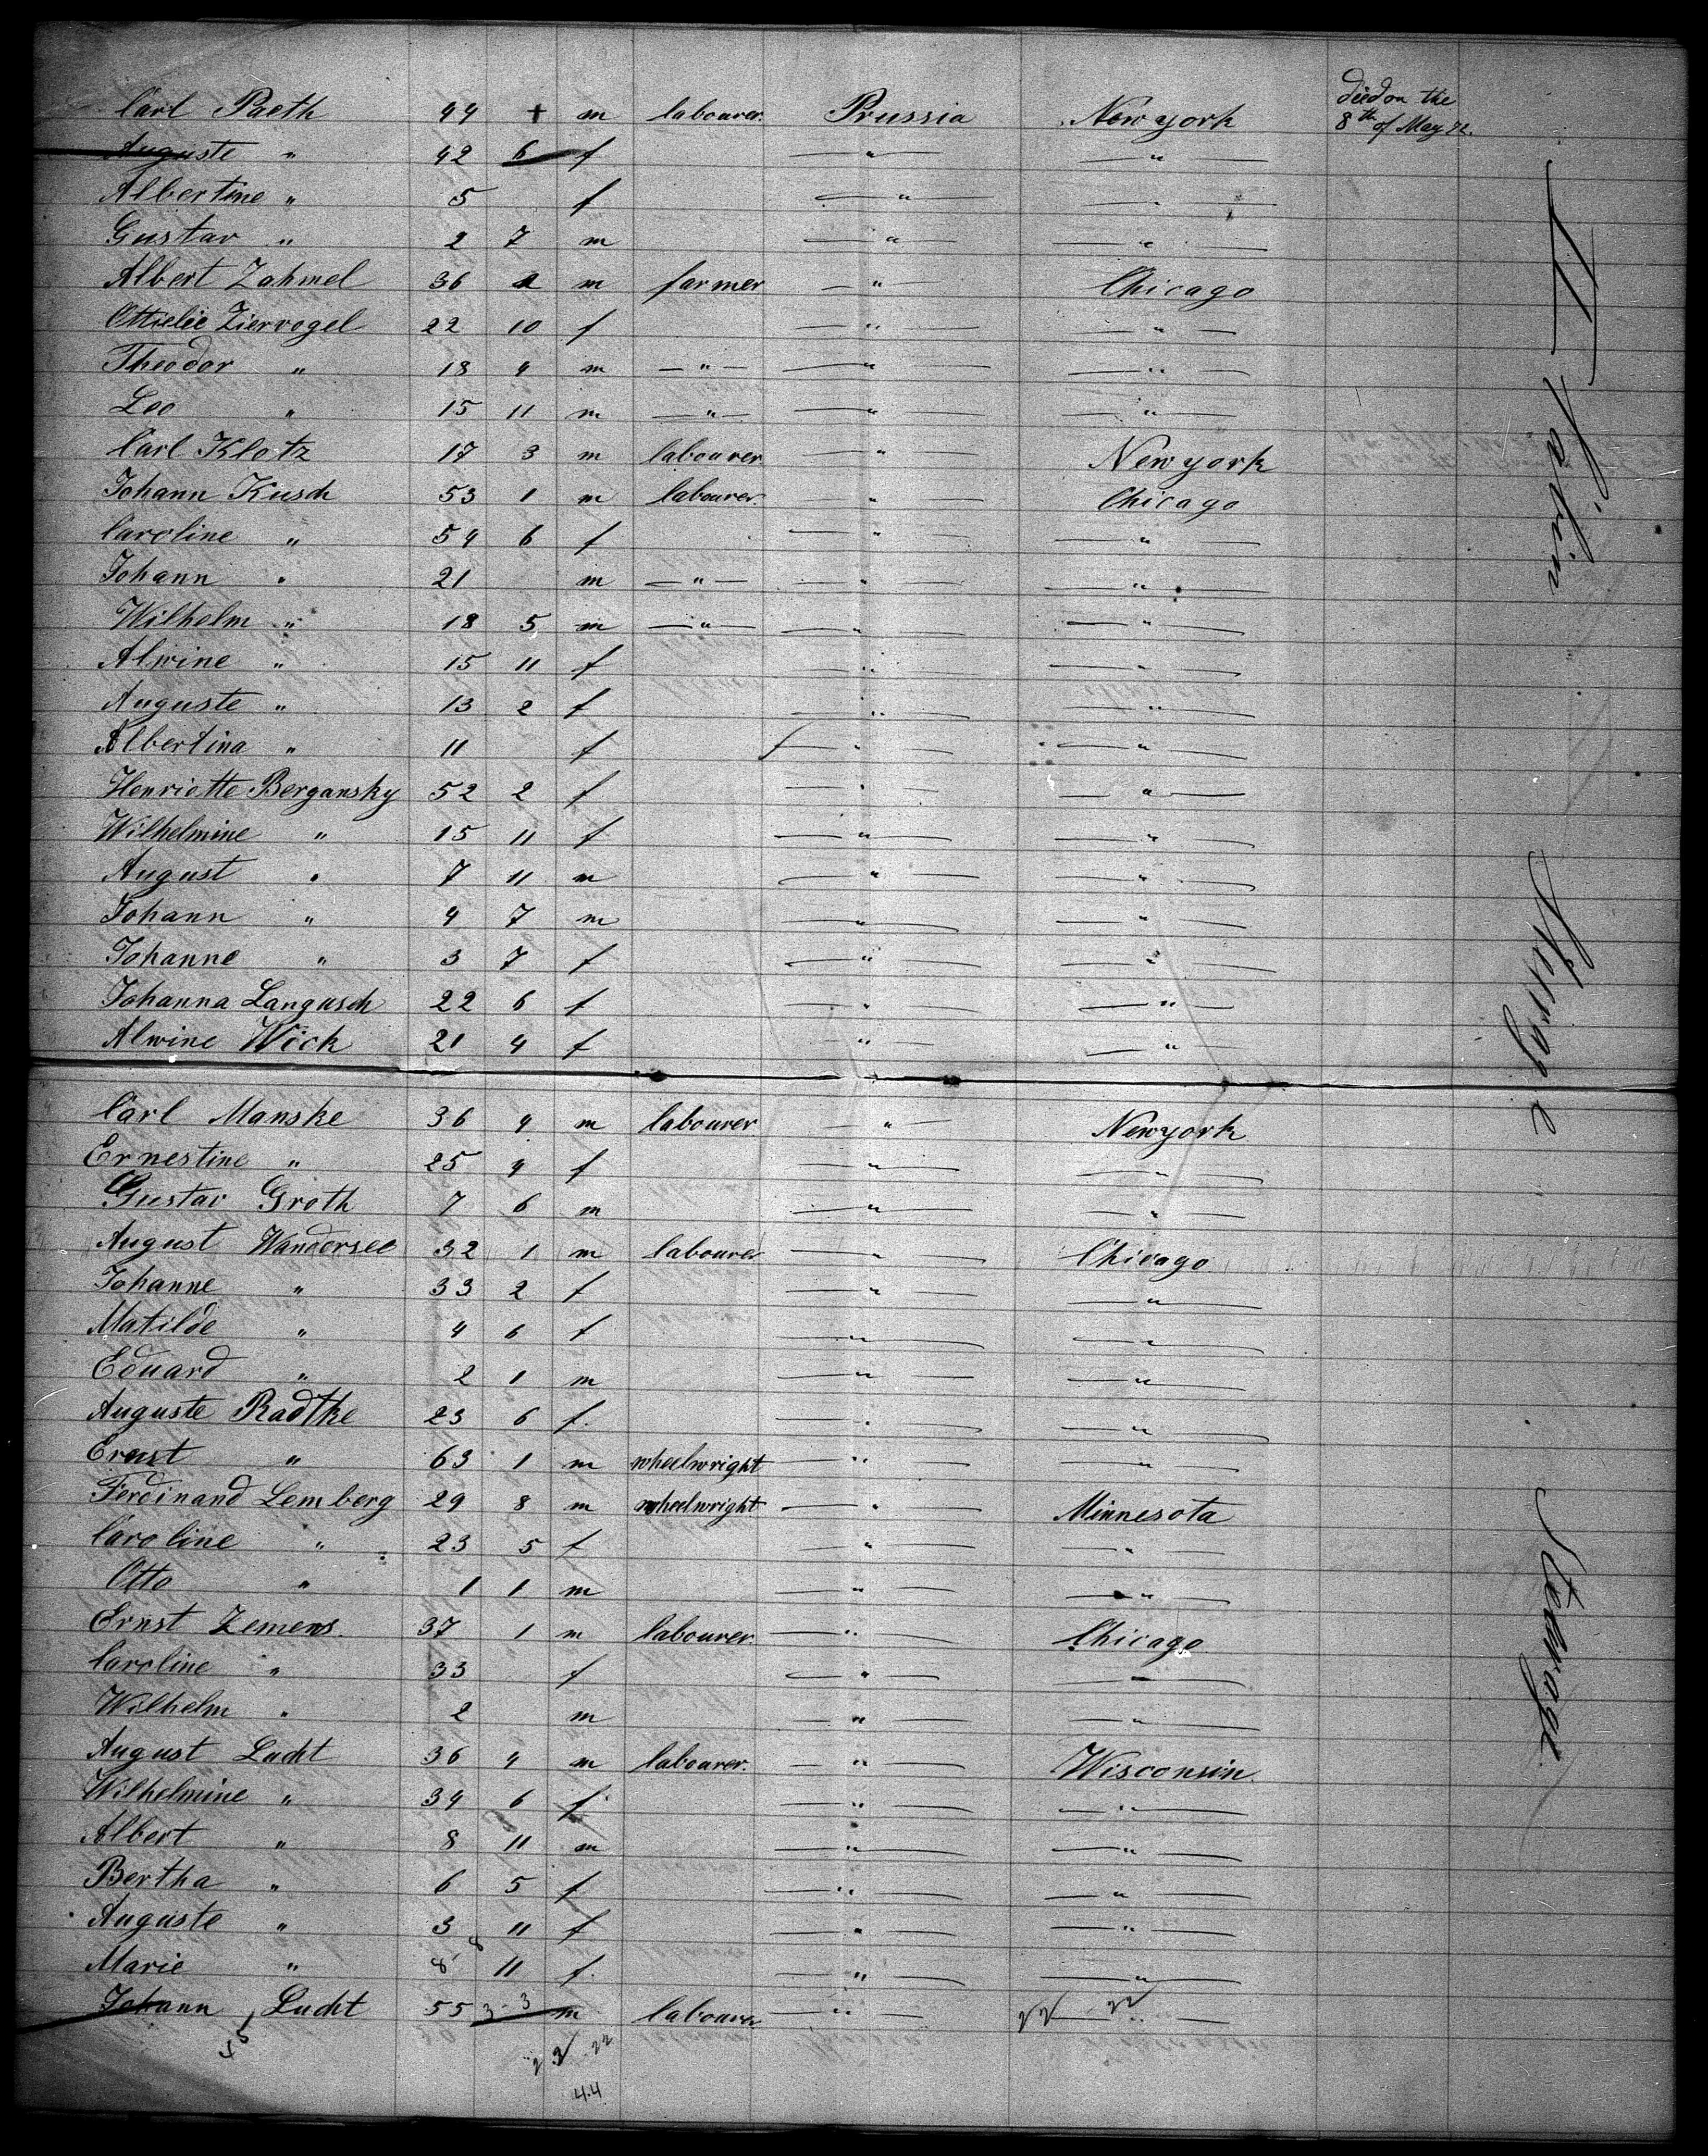 Carl Paeth 44 + m labourer. Prussia New york died on the
8th of May 72.
Auguste " 42 6 f " "
Albertine " 5 f " "
Gustav " 2 7 m " "
Albert Zahmel 36 m farmer " Chicago
Ottielie Ziervogel 22 10 f " "
Theodor " 18 4 m " " "
Leo " 15 11 m " " "
Carl Klotz 17 3 m labourer " New york
Johann Kusch 53 1 m labourer " Chicago
Caroline " 54 6 f " "
Johann " 21 m " " "
Wilhelm " 18 5 m " " "
Alwine " 15 11 f " "
Auguste " 13 2 f " "
Albertina " 11 f " "
Henriette Bergansky 52 2 f " "
Wilhelmine " 15 11 f " "
August " 7 11 m " "
Johann " 4 7 m " "
Johanne " 3 7 f " "
Johanna Langusch 22 6 f " "
Alwine Wick 21 4 f " "
Carl Manske 36 4 m labourer " Newyork
Ernestine " 25 4 f " "
Gustav Groth 7 6 m " "
August Wandersee 32 1 m labourer " Chicago
Johanne " 33 2 f " "
Matilde " 4 6 f " "
Eduard " 2 1 m " "
Auguste Radtke 23 6 f. " "
Ernst " 63 1 m wheelwright " "
Ferdinand Lemberg 29 8 m wheelwright " Minnesota
Caroline " 23 5 f " "
Otto " 1 1 m " "
Ernst Zemens 37 1 m labourer " Chicago
Caroline " 33 f " "
Wilhelm " 2 m " "
August Lucht 36 4 m labourer. " Wisconsin.
Wilhelmine " 34 6 f " "
Albert " 8 11 m " "
Bertha " 6 5 f " "
Auguste " 3 11 f " "
Marie " 8 11 f. " "
Johann Lucht 55 3 - 3 m labourer " 22 - 22
45 22 22
44
Steerage